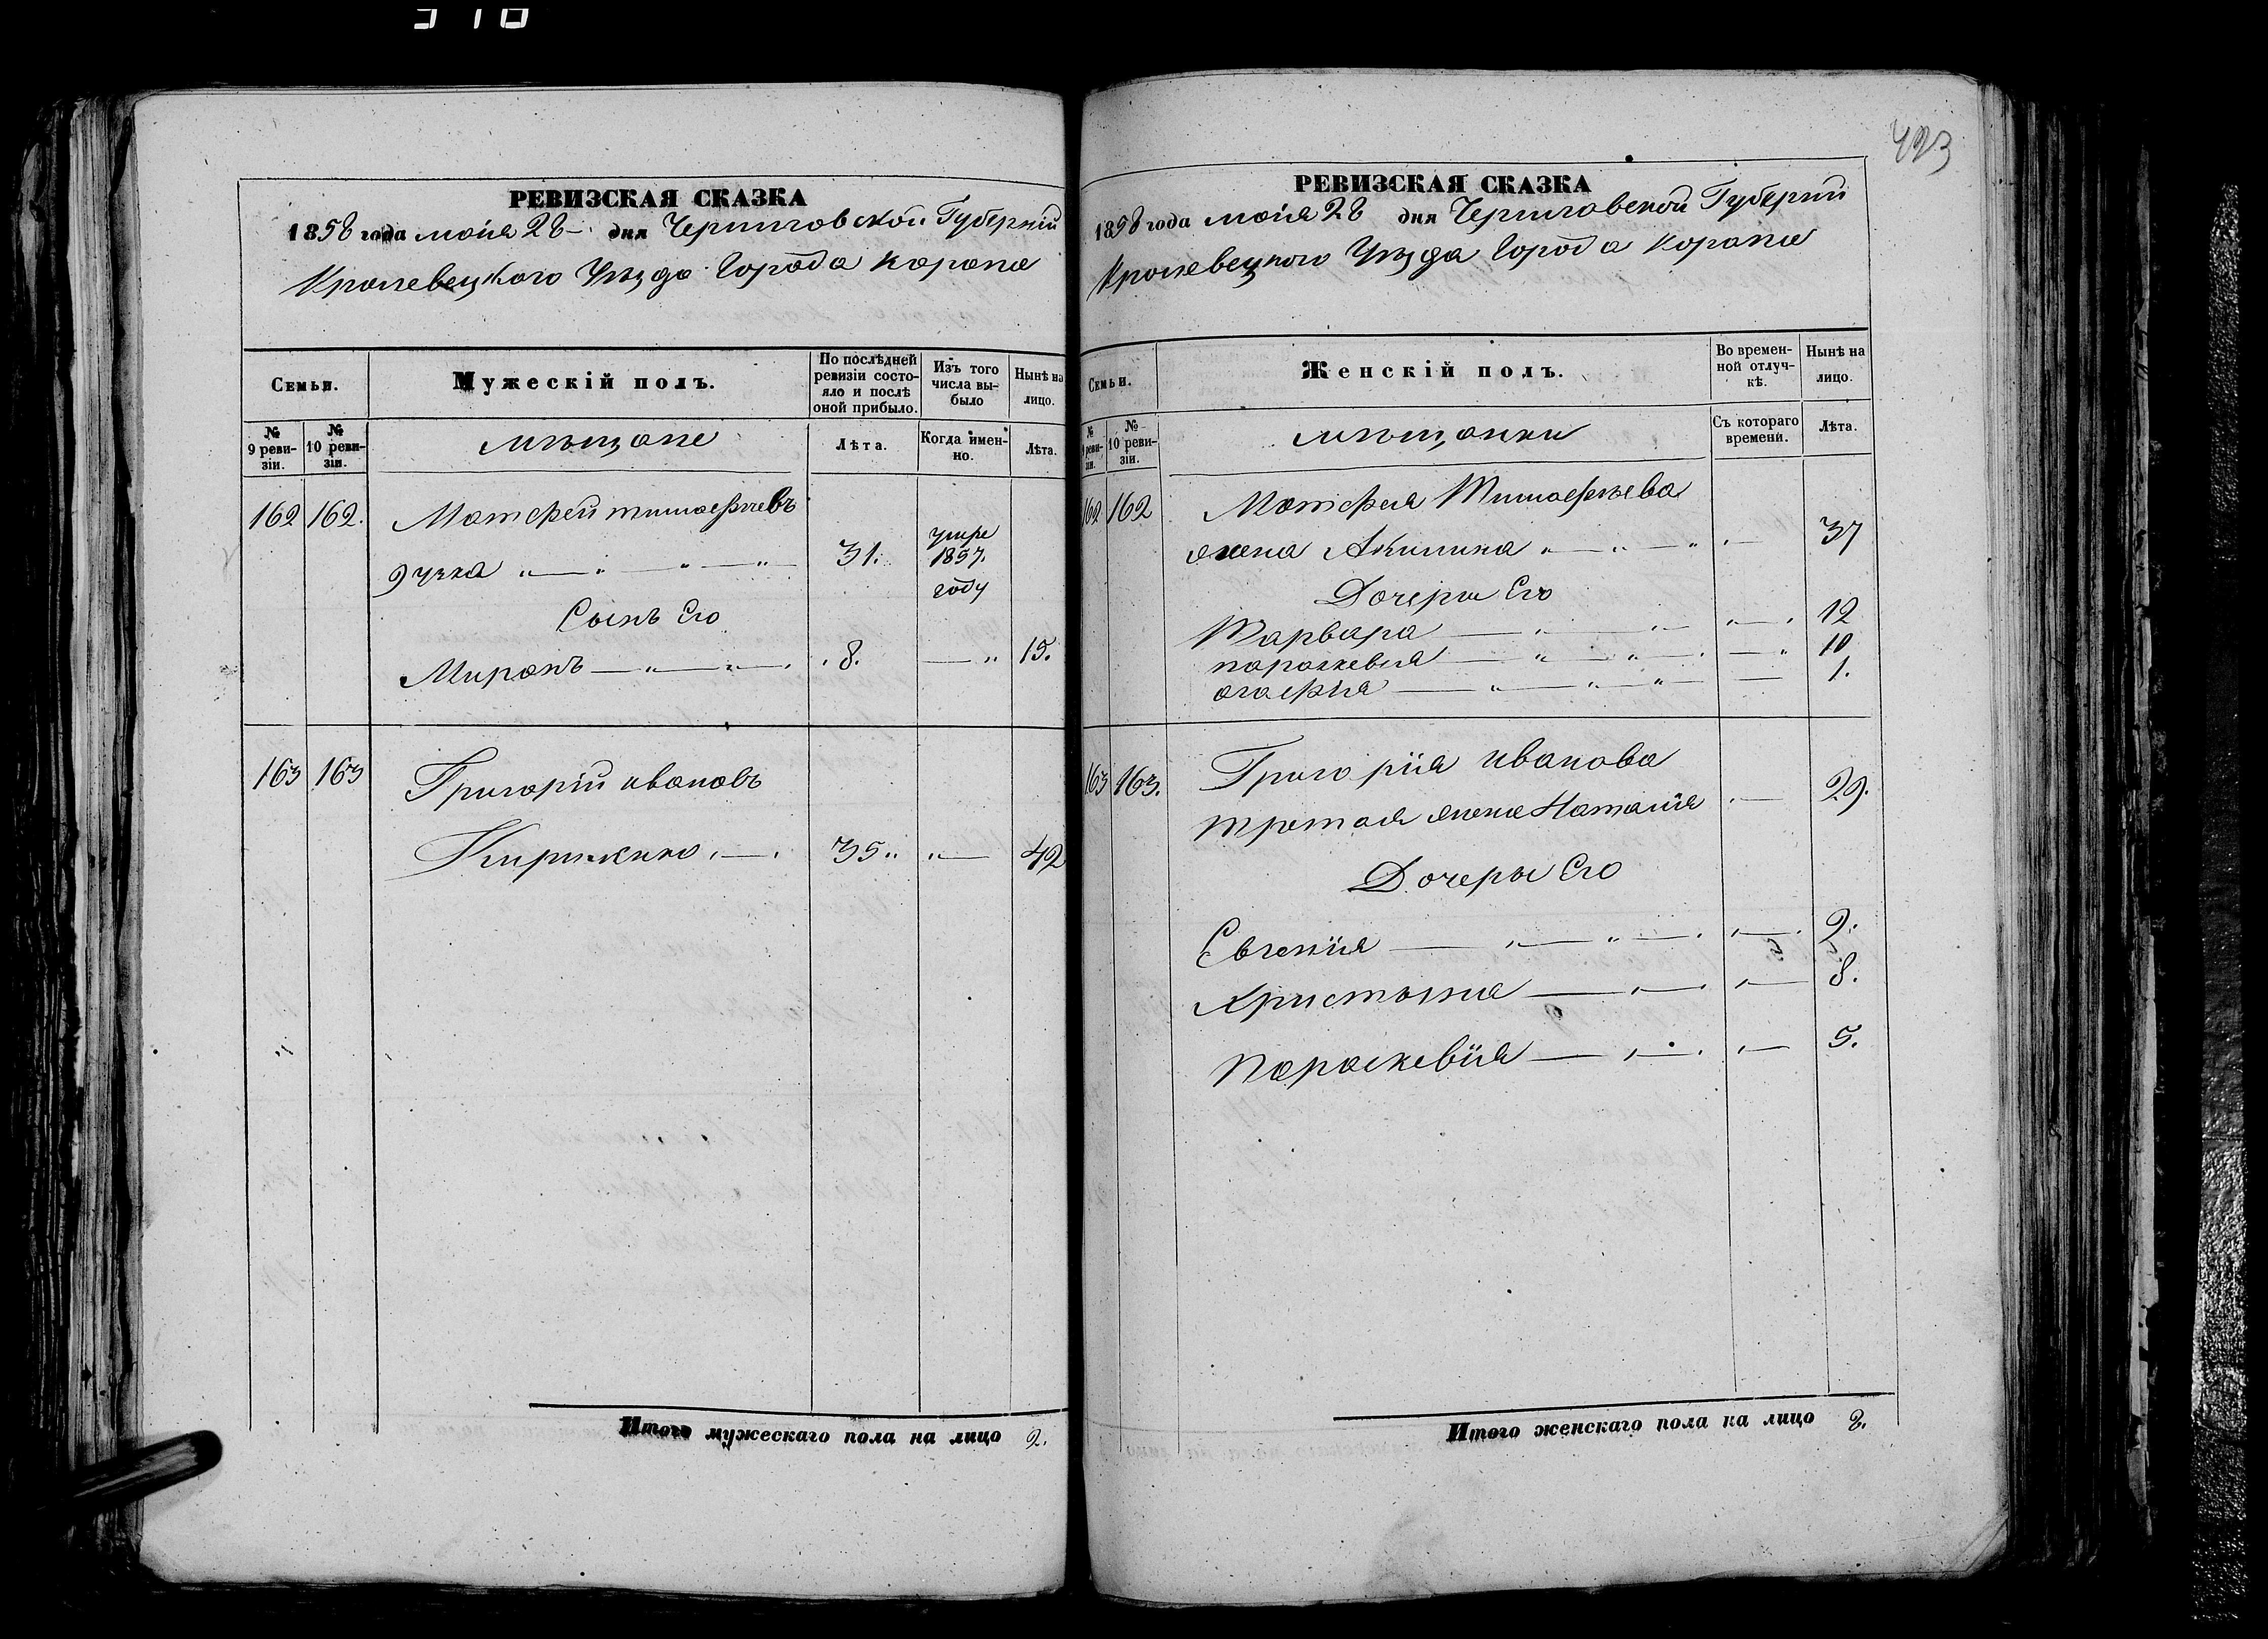 РЕВИЗСКАЯ СКАЗКА
1858 года маія 28 дня Черниговской Губерніи
Кролевецкого Уѣзда Города Коропа
Семьи.
Мужескій полъ.
По послѣдней ревизіи состояло и послѣ оной прибыло.
Изъ того числа выбыло
Нынѣ на лицо.
№ 9 ревизіи.
№ 10 ревизіи.
мѣщане
Лѣта.
Когда имен-но.
Лѣта.
162 162. Матфей тимофѣевъ
31. умре 1857. году
Сынъ Его
Миронъ 8. 15.
163 163 Григорій ивановъ
35 42
Итого мужескаго пола на лицо 2.
423
РЕВИЗСКАЯ СКАЗКА
1858 года маія 28 дня Черниговской Губерніи
Кролевецкого Уѣзда Города Коропа
Семьи.
Женскій полъ.
Во времен-ной отлуч-кѣ.
Нынѣ на лицо.
№ 9 реви-зіи.
№ 10 реви-зіи.
мѣщанки
Съ котораго времени.
Лѣта.
162 162 Матфея Тимофѣева
жена Акилина 37
Дочери Его
Варвара 12
параскевия 10
агафія 1.
163 163. Григорія иванова
третая жена Наталія 29.
Дочеры Его
Евгенія 9.
Христина 8.
Параскевія 5.
Итого женскаго пола на лицо 8.